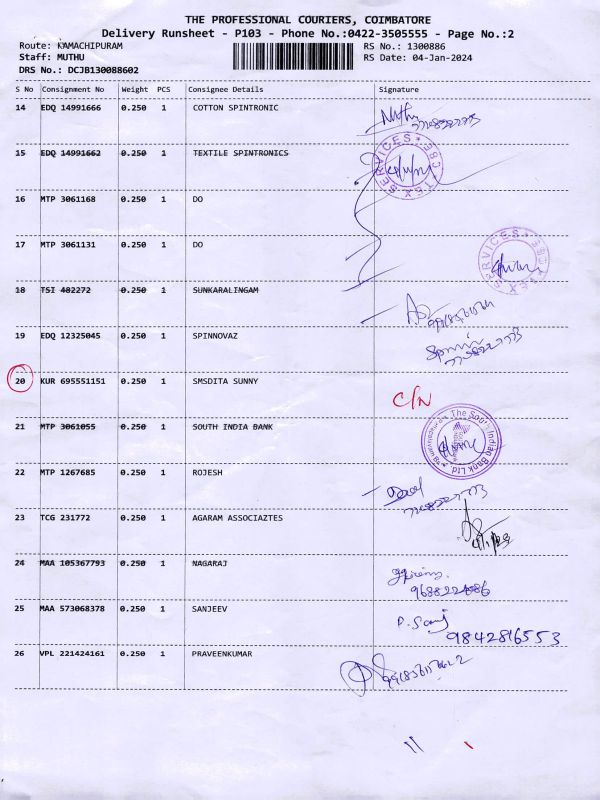 THE PROFESSIONAL COURIERS, COIMBATORE
Delivery Runsheet - P103 - Phone No.:0422-3505555 - Page No.:2
Route: KAMACHIPURAM
RS No.: 1300886
Staff: MUTHU
RS Date: 04-Jan-2024
DRS No.: DCJB130088602
S No Consignment No Weight PCS Consignee Details Signature
14 EDQ 14991666 0.250 1 COTTON SPINTRONIC
15 EDQ 14991662 0.250 1 TEXTILE SPINTRONICS
TEX SERVICES CBE
16 MTP 3061168 0.250 1 DO
17 MTP 3061131 0.250 1 DO
TEX SERVICES CBE
18 TSI 482272 0.250 1 SUNKARALINGAM
19 EDQ 12325045 0.250 1 SPINNOVAZ
20 KUR 695551151 0.250 1 SMSDITA SUNNY
C/N
21 MTP 3061055 0.250 1 SOUTH INDIA BANK
The South Indian Bank Ltd.
22 MTP 1267685 0.250 1 ROJESH
23 TCG 231772 0.250 1 AGARAM ASSOCIAZTES
24 MAA 105367793 0.250 1 NAGARAJ
25 MAA 573068378 0.250 1 SANJEEV
9842816553
26 VPL 221424161 0.250 1 PRAVEENKUMAR